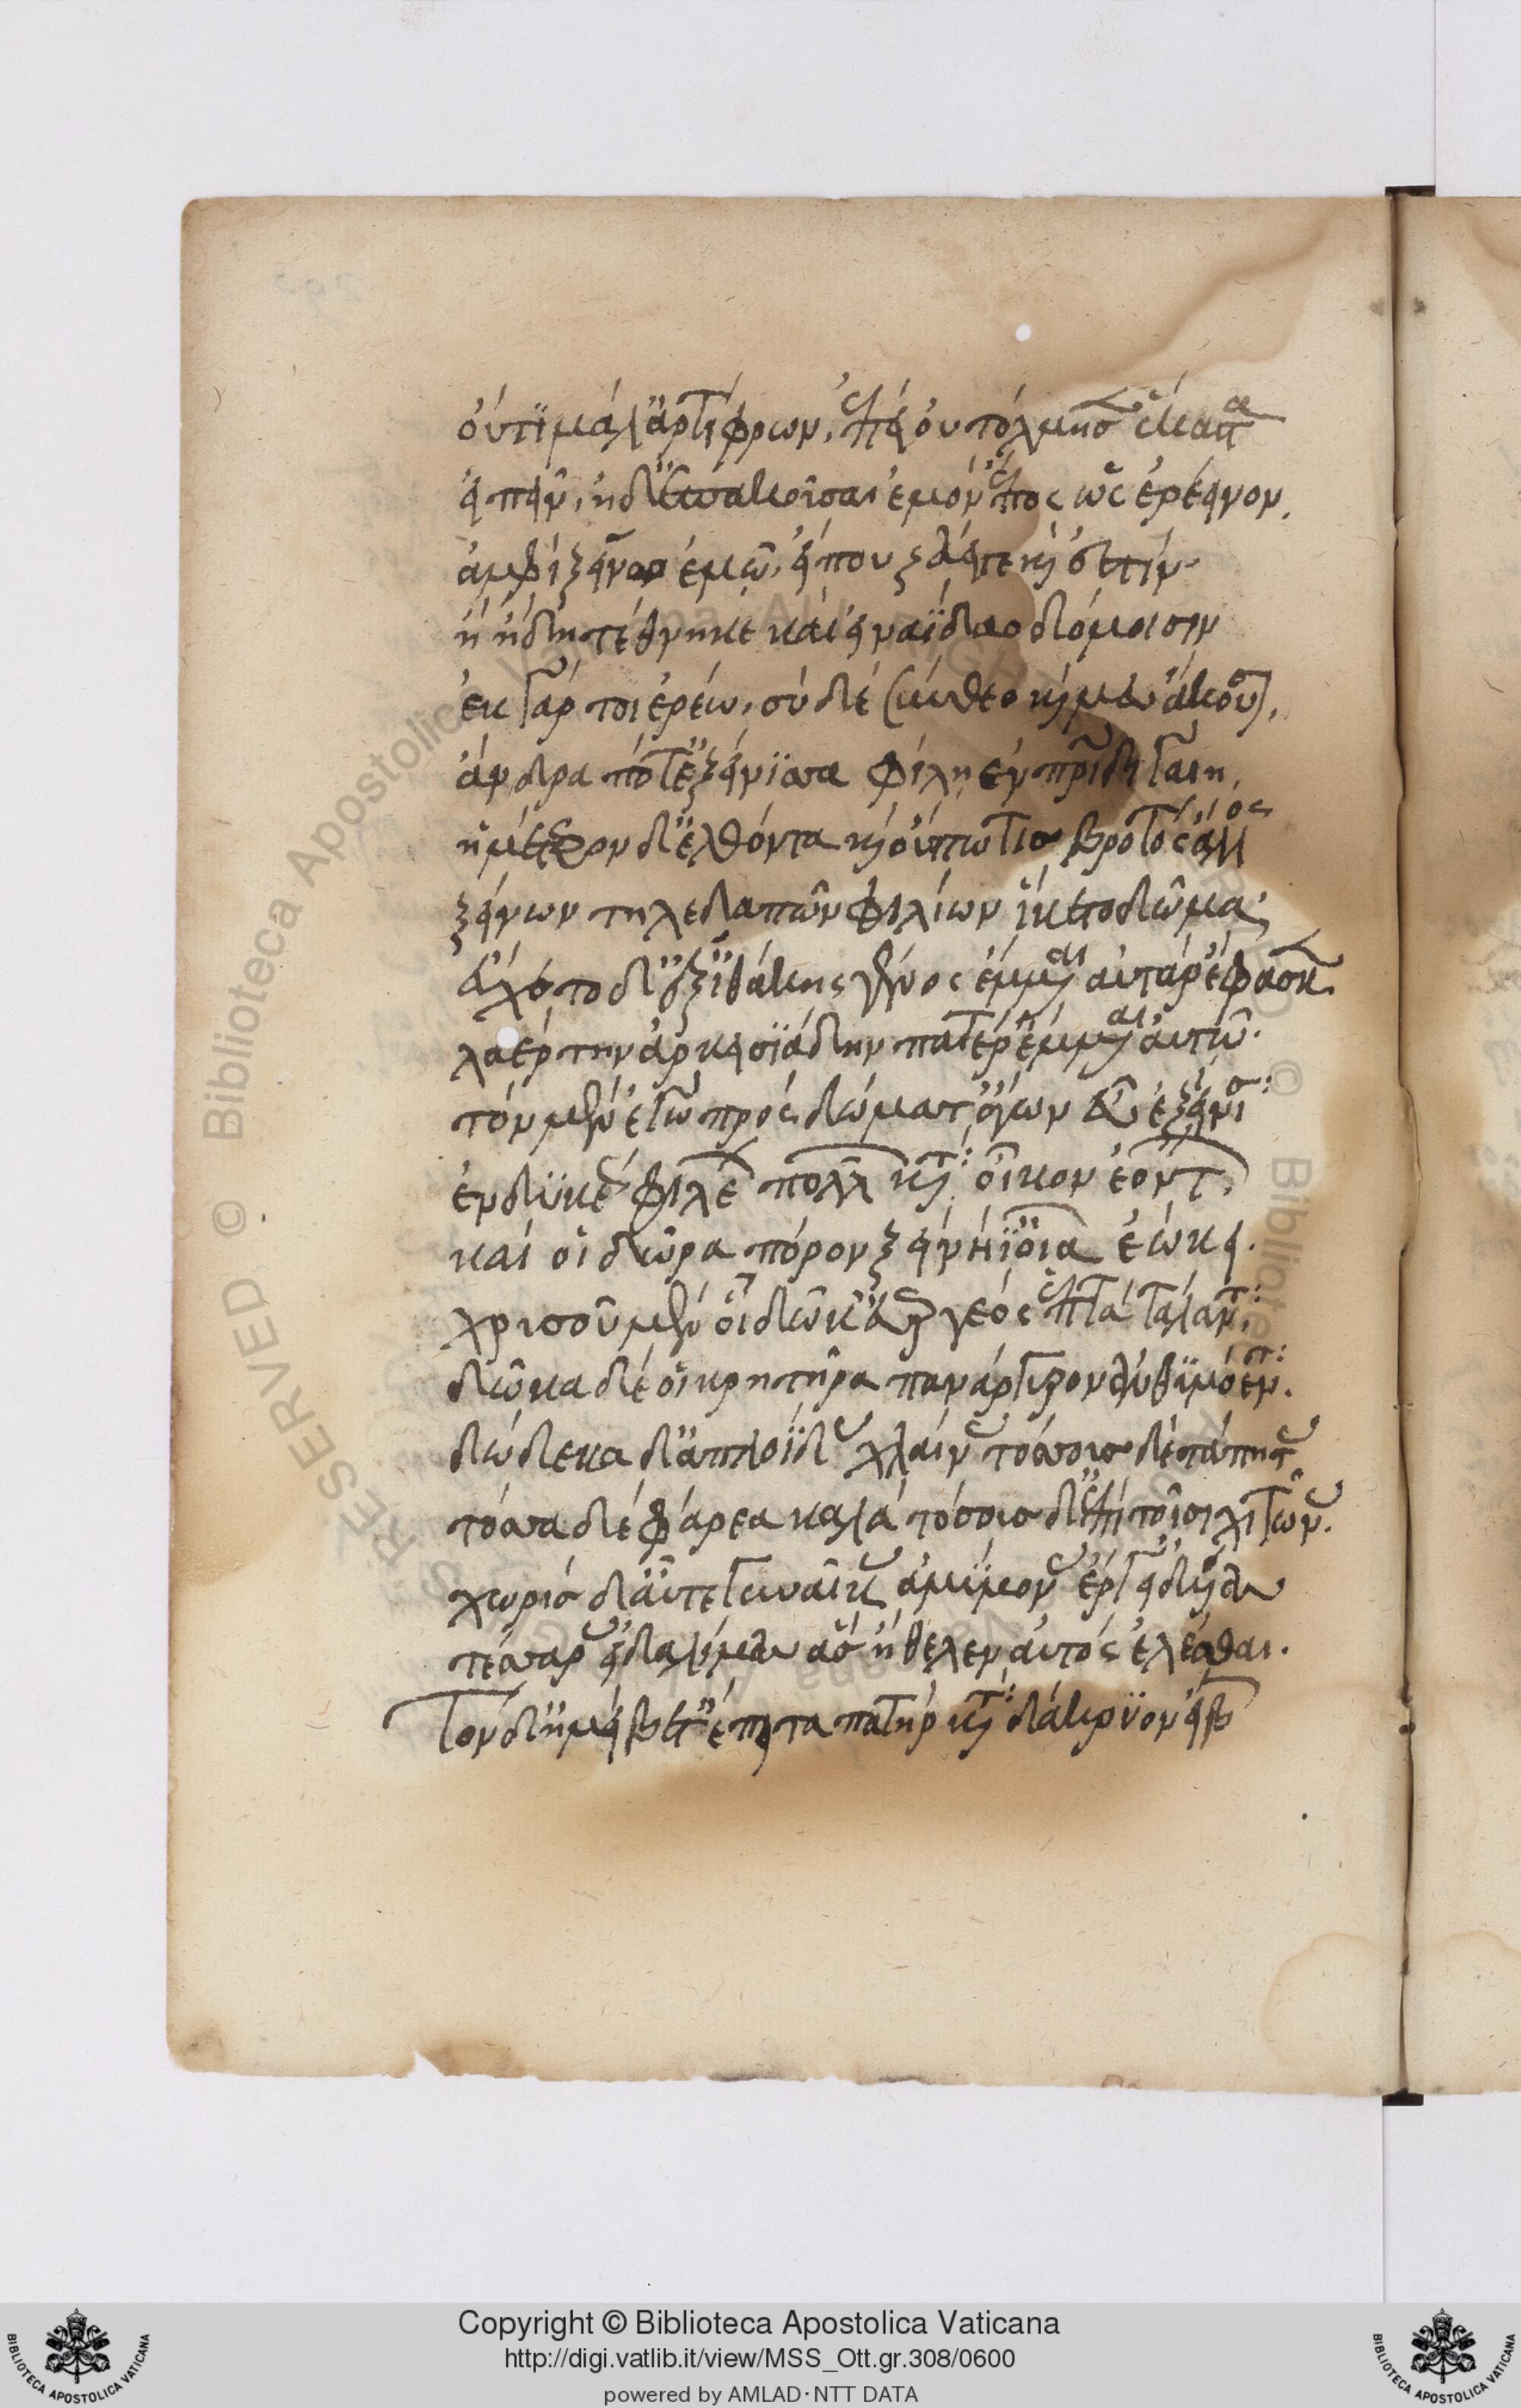 οὔτι μάλ' ἀρτίφρων, ἐπεὶ οὐ τόλμησεν ἕκαστα
εἰπεῖν, ἠδ' ἐπακοῦσαι ἐμὸν ἔπος ὡς ἐρέεινον
ἀμφὶ ξείνω ἐμῶ, εἴ που ζώει τε καὶ ἔστιν
ἢ ἤδη τέθνηκε καὶ εἰν ἀΐδαο δόμοισιν
ἐκ γάρ τοι ἐρέω, σὺ δὲ σύνθεο καί μευ ἄκουσον.
ἄνδρα ποτ' ἐξείνισσα φίλη ἐν πατρίδι γαίη,
ἡμέτερον δ' ἐλθόντα καὶ οὔπω τις βροτὸς ἄλλος
ξείνων τηλεδαπῶν φιλίων ἵκετο δῶμα
εὔχετο δ' ἐξ ἰθάκης γένος ἔμμεναι αὐτὰρ ἔφασκε
λαέρτην ἀρκεισιάδην πατέρ' ἔμμεναι αὐτῶ.
τὸν μὲν ἐγὼ πρὸς δώματ' ἄγων εὖ ἐξείνισσα
ἐνδυκέως φιλέων πολλῶν κατὰ οἶκον ἐόντων,
καί οἱ δῶρα πόρον ξεινήϊα οἷα ἐώκει.
χρυσοῦ μέν οἱ δῶκ' εὐεργέος ἑπτὰ τάλαντα,
δῶκα δέ οἱ κρητῆρα πανάργυρον ἀνθεμόεντα.
δώδεκα δ' ἁπλοΐδας χλαίνας τόσσους δὲ τάπητας
τόσσα δὲ φάρεα καλὰ τόσους δ' ἐπὶ τοῖσι χιτῶνας.
χωρὶς δ' αὖτε γυναῖκας ἀμύμονας ἔργ' εἰδυίας
τέσσαρας εἰδαλίμας ἃς ἤθελεν αὐτὸς ἑλέσθαι.
Τὸν δ' ἠμείβετ' ἔπειτα πατὴρ κατὰ δάκρυον εἴβων
Copyright © Biblioteca Apostolica Vaticana
http://digi.vatlib.it/view/MSS_Ott.gr.308/0600
powered by AMLAD·NTT DATA